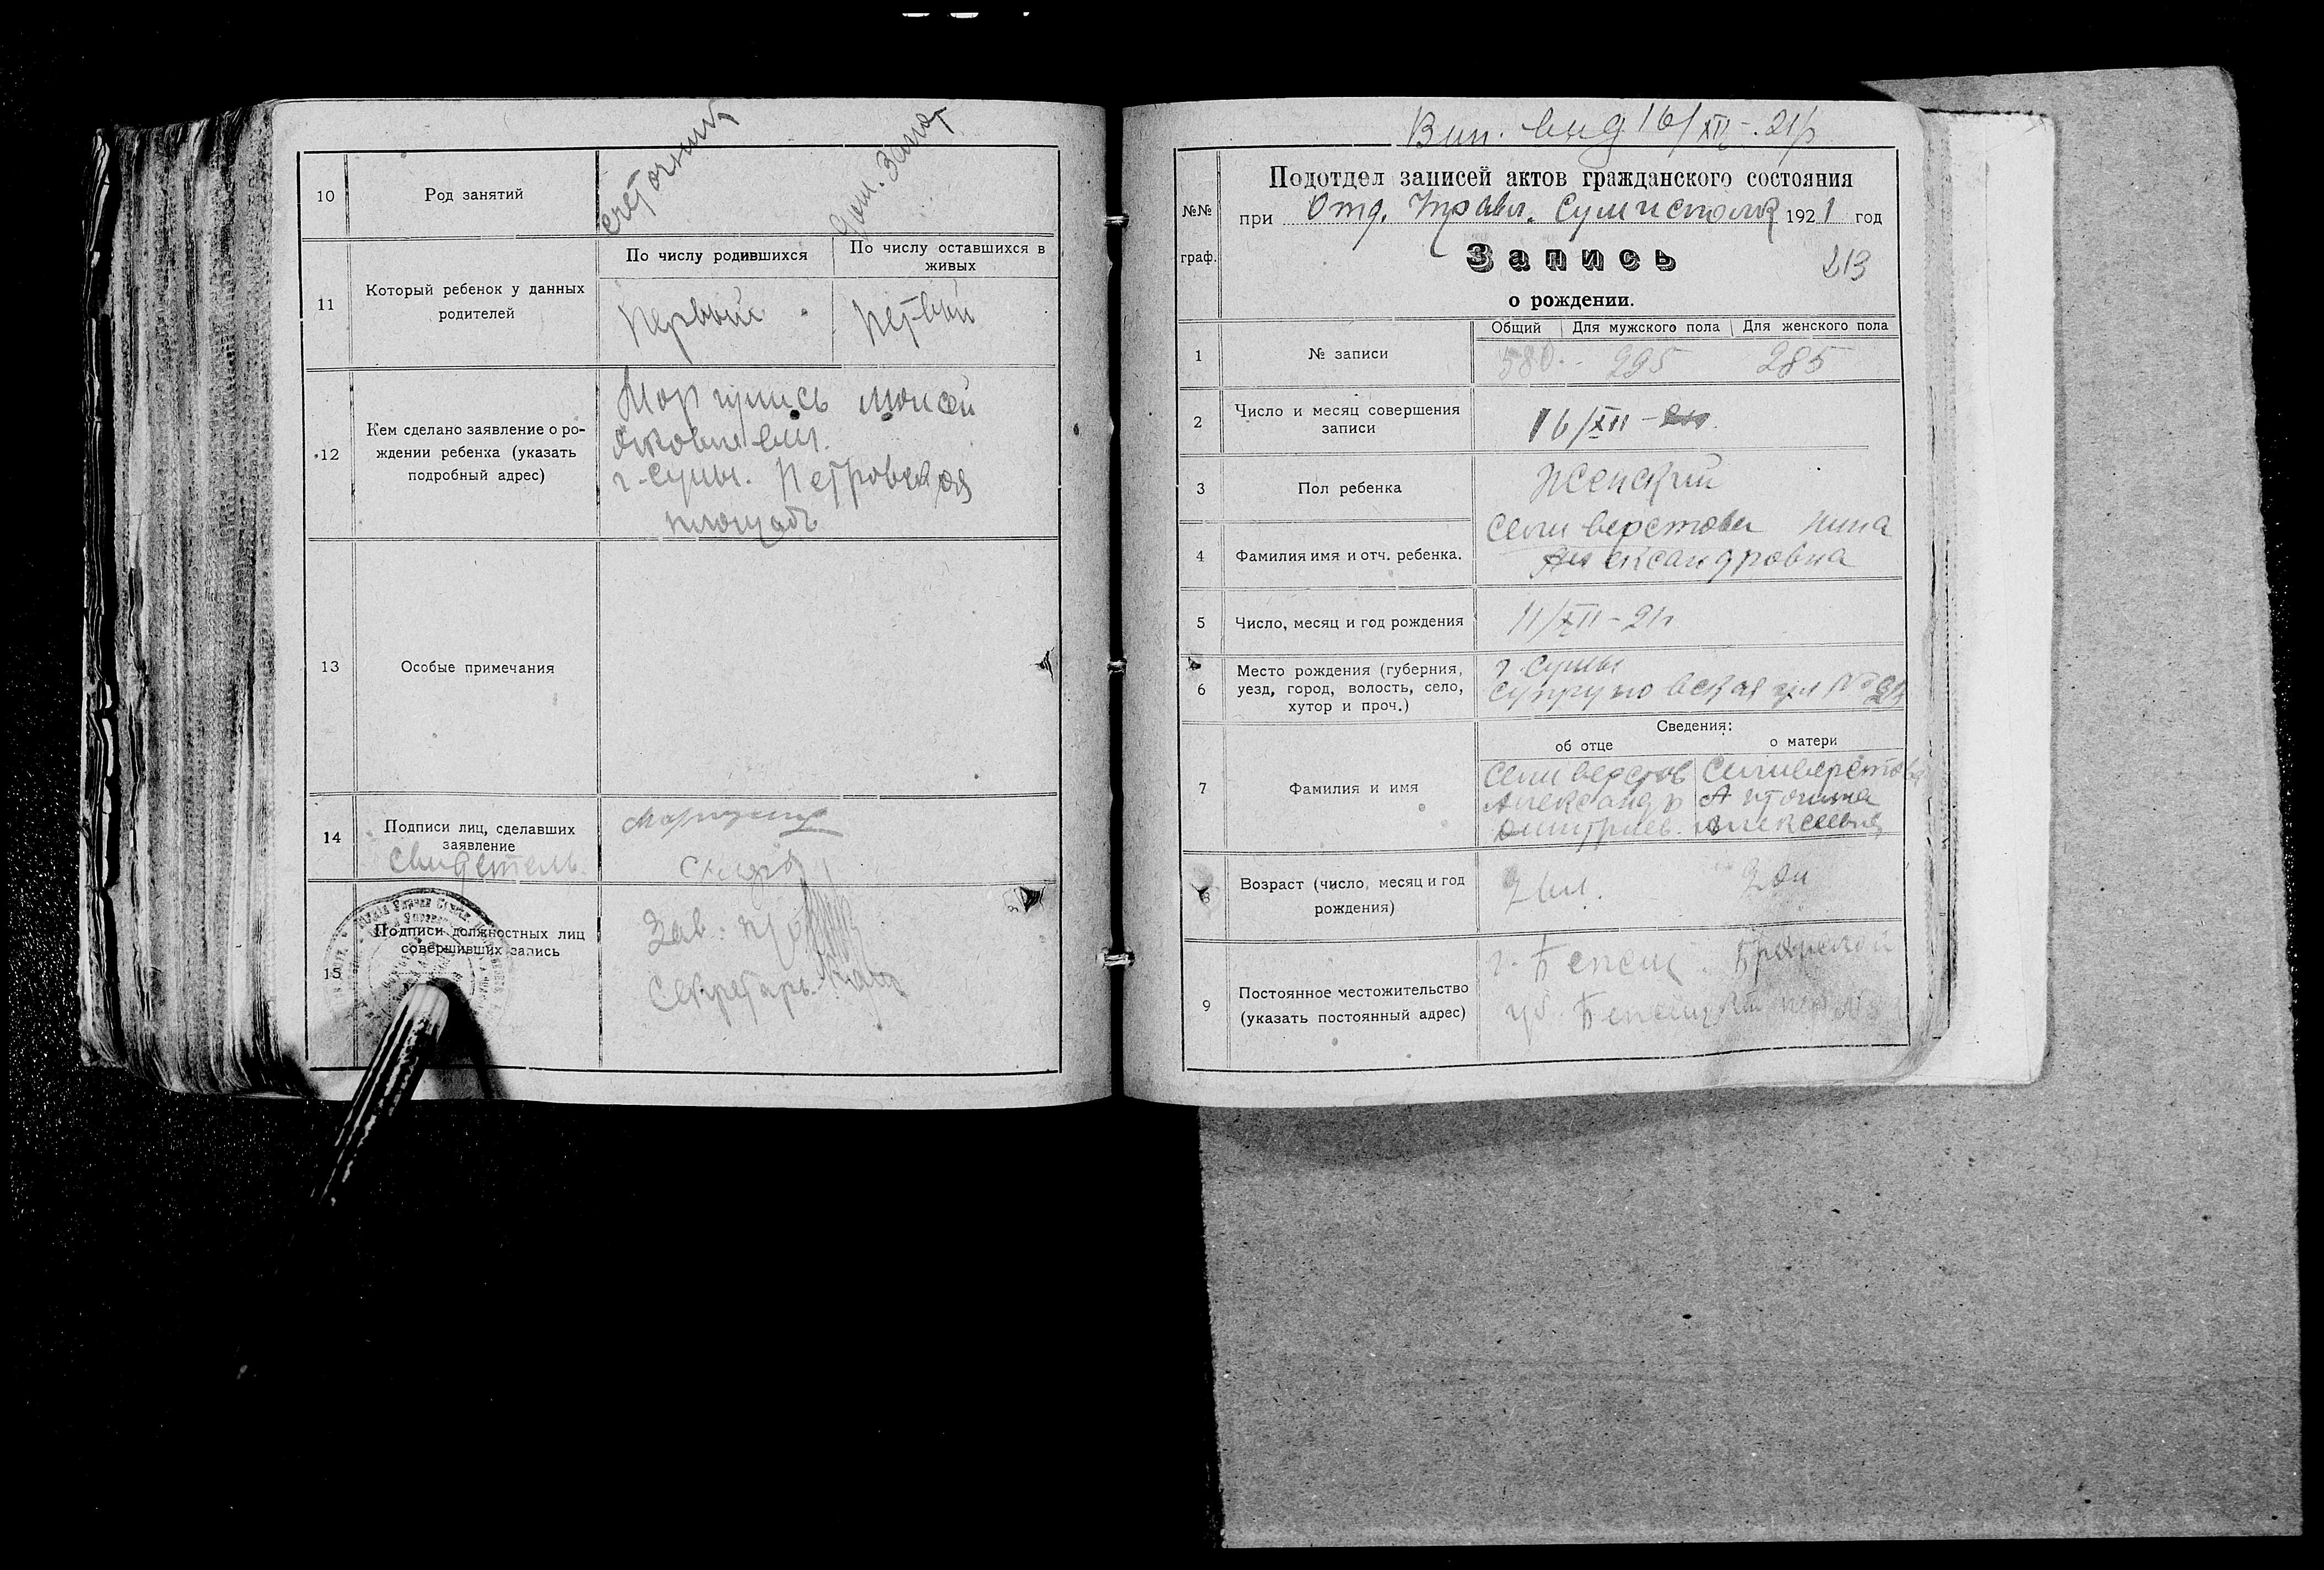 10
Род занятий
счеточник
дом. занят
11
Который ребенок у данных
родителей
По числу родившихся
По числу оставшихся в
живых
Первый
Первый
12
Кем сделано заявление о ро-
ждении ребенка (указать
подробный адрес)
Моисей
Яковлевич.
г. Сумы. Петровская
площадь
13
Особые примечания
14
Подписи лиц, сделавших
заявление
свидетель
15
Подписи должностных лиц
совершивших запись
Зав.
Секретарь
Вып. выд 16/XII-21г
№№
граф.
Подотдел записей актов гражданского состояния
при Отд. Управл. 1921 год
Запись
213
о рождении.
1
№ записи
Общий
Для мужского пола
Для женского пола
580
295
285
2
Число и месяц совершения
записи
16/XII
3
Пол ребенка
Женский
4
Фамилия имя и отч. ребенка.
Селиверстова Нина
Александровна
5
Число, месяц и год рождения
11/XII-21г
6
Место рождения (губерния,
уезд, город, волость, село,
хутор и проч.)
г. Сумы
Супруновская ул №
Сведения:
об отце
о матери
7
Фамилия и имя
Селиверстов
Александр
Дмитриев.
Селиверстова
Антонина
Алексеевна
8
Возраст (число, месяц и год
рождения)
9
Постоянное местожительство
(указать постоянный адрес)
г.